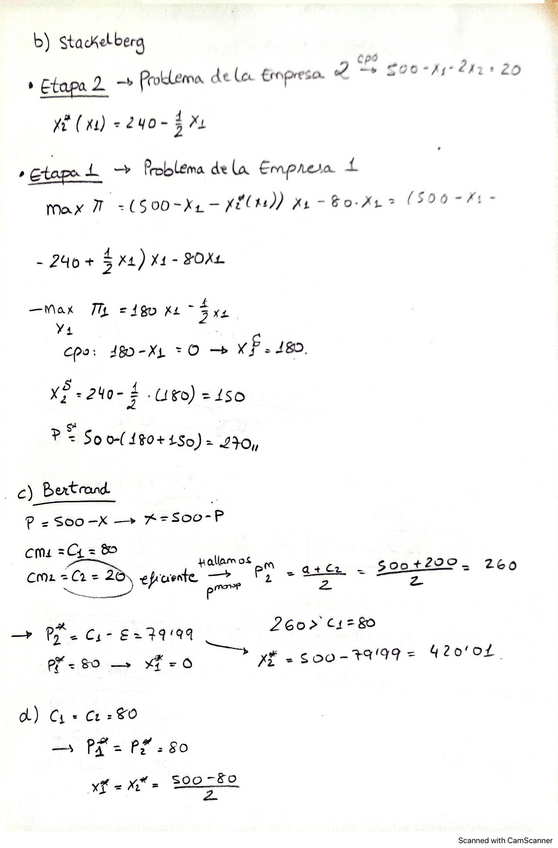 b) Stackelberg
• Etapa 2 → Problema de la Empresa 2 cpo→ 500-x1-2x2=20
x2*(x1) = 240 - 1/2 x1
• Etapa 1 → Problema de la Empresa 1
max π = (500-x1-x2*(x1)) x1 - 80·x1 = (500-x1-
-240 + 1/2 x1) x1 - 80x1
-max π1 = 180 x1 - 1/2 x1
x1
cpo: 180-x1 = 0 → x1^S = 180.
x2^S = 240 - 1/2 · (180) = 150
P^St = 500-(180+150) = 270,,
c) Bertrand
P = 500-X → X = 500-P
CM1 = C1 = 80
CM2 = C2 = 20 eficiente Hallamos→ pmonop P2^m = a+c2/2 = 500+200/2 = 260
→ P2* = C1 - ε = 79'99
260 > C1 = 80
P1* = 80 → x1* = 0
x2* = 500-79'99 = 420'01.
d) C1 = C2 = 80
→ P1* = P2* = 80
x1* = x2* = 500-80/2
Scanned with CamScanner